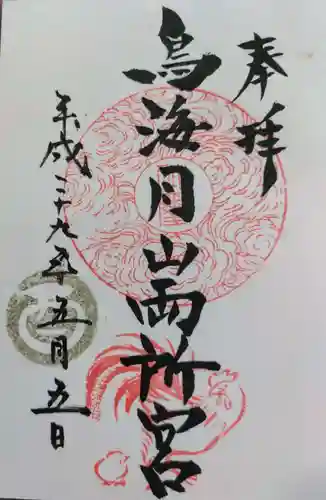 奉拝
鳥海月山両所宮
平成二十九年五月五日